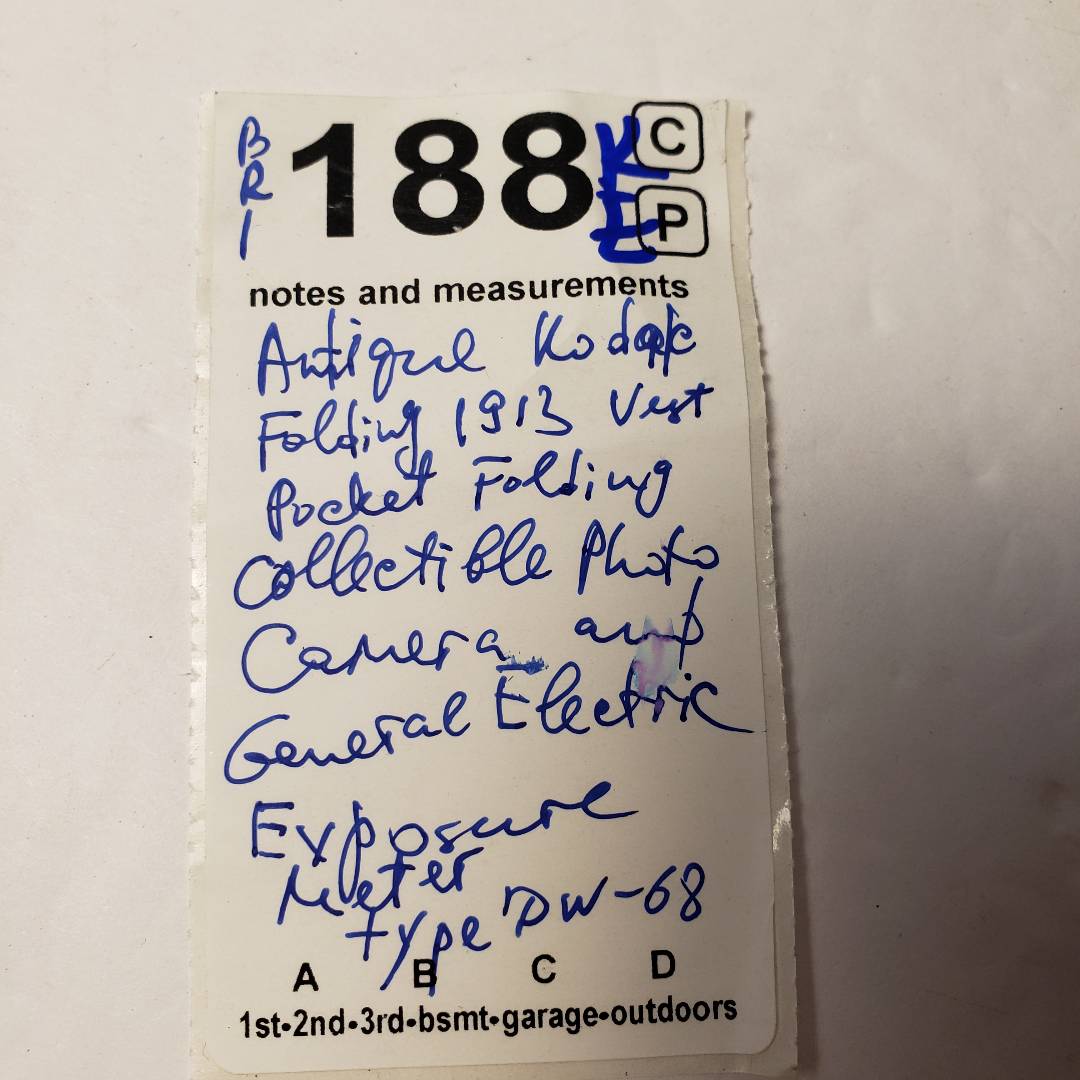 BRI 188 KE C P
notes and measurements
Antique Kodak
Folding 1913 Vest
Pocket Folding
Collectible Photo
Camera and
General Electric
Exposure
Meter
type DW-68
A B C D
1st•2nd•3rd•bsmt•garage•outdoors